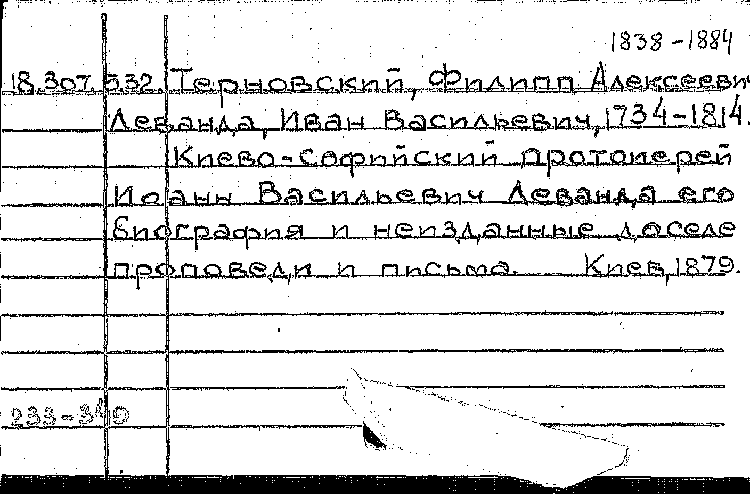 1838-1884
18.307.532. Терновский, Филипп Алексеевич
Леванда, Иван Васильевич, 1734-1814.
Киево-Софийский протоиерей
Иоанн Васильевич Леванда его
биография и неизданные доселе
проповеди и письма. Киев, 1879.